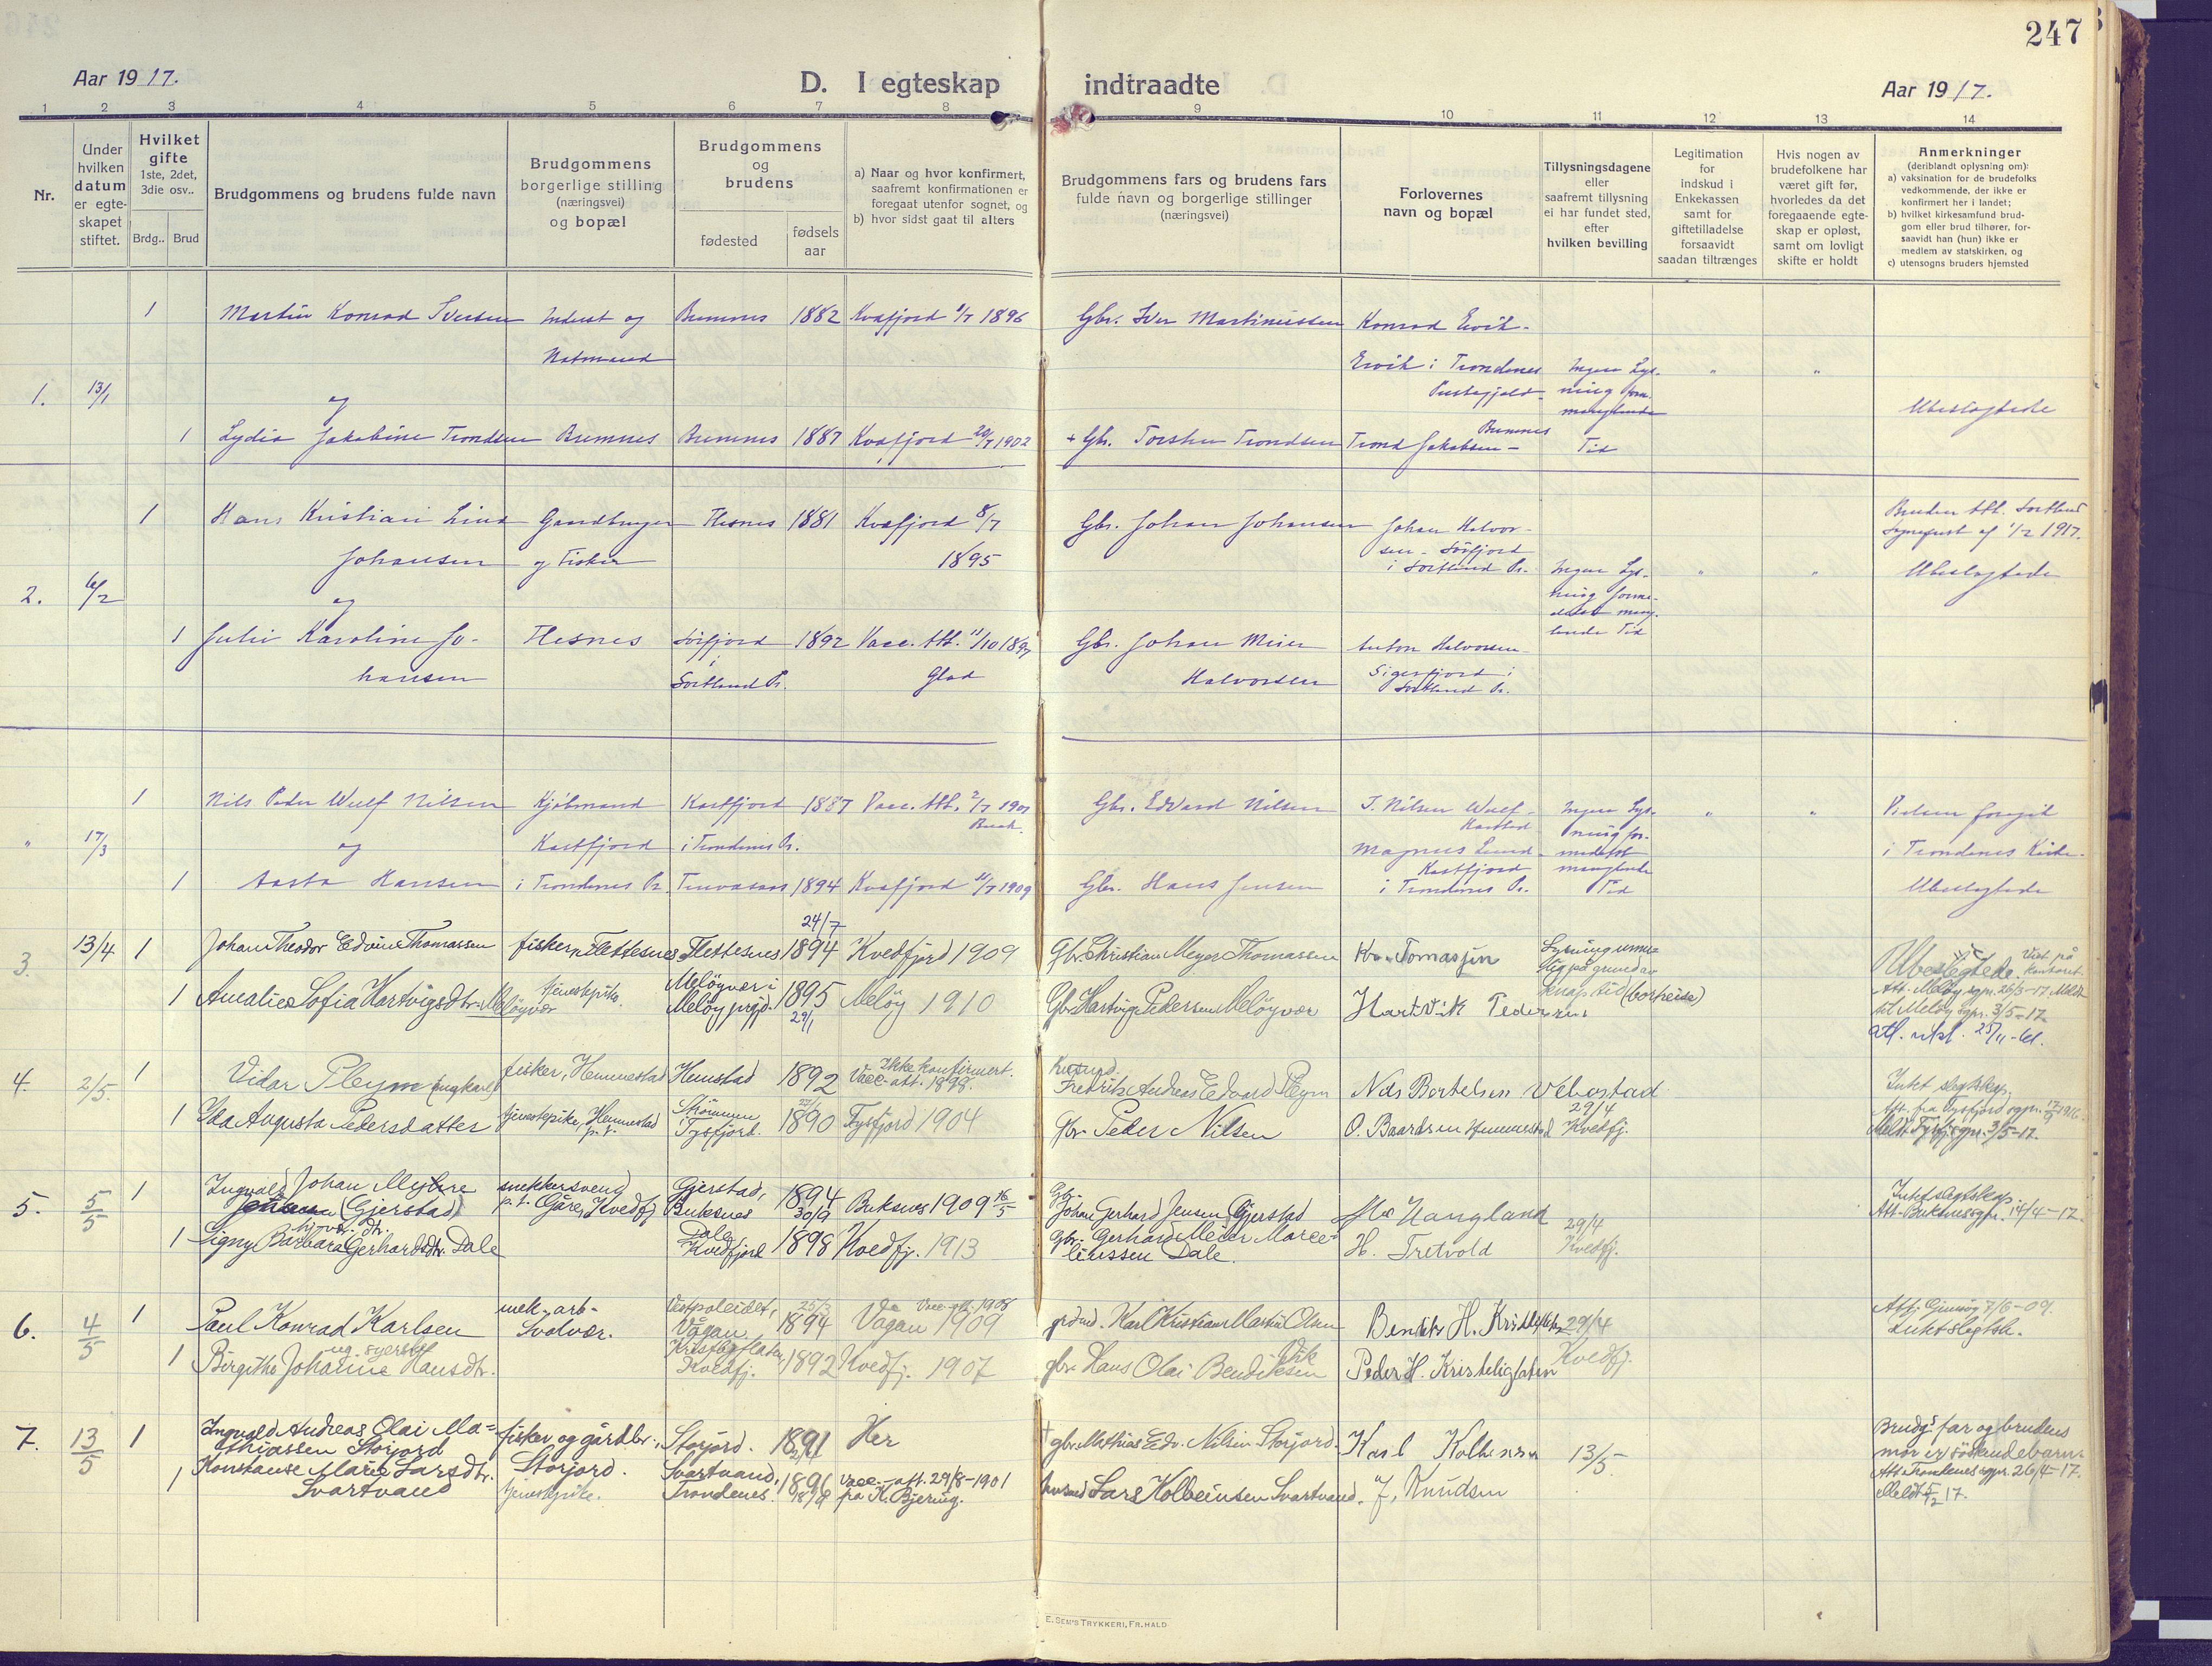 247
Aar 1917.
D. I egteskap indtraadte
Aar 1917.
1 2 3 4 5 6 7 8 9 10 11 12 13 14
Nr.
Under hvilken datum er egteskapet stiftet.
Hvilket gifte 1ste, 2det, 3die osv..
Brdg.. Brud
Brudgommens og brudens fulde navn
Brudgommens borgerlige stilling (næringsvei) og bopæl
Brudgommens og brudens
fødested
fødsels aar
a) Naar og hvor konfirmert, saafremt konfirmationen er foregaat utenfor sognet, og
b) hvor sidst gaat til alters
Brudgommens fars og brudens fars fulde navn og borgerlige stillinger (næringsvei)
Forlovernes navn og bopæl
Tillysningsdagene eller saafremt tillysning ei har fundet sted, efter hvilken bevilling
Legitimation for indskud i Enkekassen samt for giftetilladelse forsaavidt saadan tiltrænges
Hvis nogen av brudefolkene har været gift før, hvorledes da det foregaaende egteskap er opløst, samt om lovligt skifte er holdt
Anmerkninger (deriblandt oplysning om):
a) vaksination for de brudefolks vedkommende, der ikke er konfirmert her i landet;
b) hvilket kirkesamfund brudgom eller brud tilhører, forsaavidt han (hun) ikke er medlem av statskirken, og
c) utensogns bruders hjemsted
1 Martin Konrad Iversen og Bremnes 1882 Kvæfjord 1896 Gbr. Iver Martinussen Konrad Ervik
Ervik i Trondenes Præstegjeld Ingen Lys-
1. 13/1 og ning Ubeslægtede
1 Lydia Jakobine Trondsen Bremnes Bremnes 1887 Kvæfjord 1902 + Gbr. Torsten Trondsen Trond Jakobsen Bremnes Tid
1 Hans Kristian Lind Gaardbruger Flesnes 1881 Kvæfjord 8/7 Gbr. Johan Johansen Johan Halvor- Bruden att. Sortland
Johansen og Fisker 1895 sen - Sörfjord i Sortland Pr. Ingen Lys- Sogneprest af 1/2 1917.
2. 6/2 og ning Ubeslægtede
1 Julie Karoline Jo- Flesnes Sörfjord 1892 Vacc. Att. 11/10 Gbr. Johan Meier Anton Halvorsen Tid
hansen i Sortland Pr. Halvorsen Sigerfjord i Sortland Pr.
1 Nils Peder Wulf Nilsen Kjöbmand Kastfjord 1887 Vacc. Att. Gbr. Edvard Nilsen J. Nilsen Wulf Ingen Lys- Vielsen foregik
" 17/3 og Kastfjord i Trondenes Pr. Magnus Lund ning i Trondenes Kirke.
1 Aasta Hansen i Trondenes Pr. 1894 Kvæfjord 1909 Gbr. Hans Jensen Kastfjord i Trondenes Pr. manglende Tid Ubeslægtede
24/7
3. 13/4 1 Johan Theodor Edvin Thomassen fisker Flettesnes Flettesnes 1894 Kvedfjord 1909 Gbr. Christian Meyer Thomassen Kr. Tomasjen Lysning umu- Ubeslegtede. Viet på kontoret
1 Amalie Sofia Hartvigsdtr. Meløyvær tjenestepike. Meløyvær i Meløy prgjd. 1895 29/1 Meløy 1910 Gbr. Hartvig Pedersen Meløyvær Hartvik Pedersen lig på grund av knap tid (bortreise) Att. Meløy sgpr. 26/3-17. Meldt til Meløy sgpr. 3/5-17.
4. 2/5. 1 Vidar Pleym (ungkarl) fisker, Hemmestad Hemstad 1892 Ikke konfirmert. Vacc.-att. 1898. Fredrik Andreas Edvard Pleym Nils Bertelsen Vebostad Intet slegtskap.
1 Ida Augusta Pedersdatter tjenestepike, Hemmestad p.t. Tysfjord. 1890 Tysfjord 1904 gbr. Peder Nilsen O. Baardsen Hemmestad 29/4 Kvedfj. Att. fra Tysfjord sgpr. Meldt Tysfj. sgpr. 3/5-17.
5. 5/5 1 Ingvald Johan Myhre (Gjerstad) snekkersvend p.t. Gåre, Kvedfj Gjerstad, Buksnes 1894 30/9 Buksnes 1909 16/5 Gbr. Johan Gerhard Jensen Gjerstad Haugland 29/4 Kvedfj. Intet slegtskap. Att. Buksnes sgpr. 14/4-17.
1 Signy Barbara Gerhardsdtr. Dale Dale, Kvedfjord 1898 Kvedfj. 1913 gbr. Gerhard Meier Marcelinssen Dale. H. Tretvold
6. 4/5 1 Paul Konrad Karlsen mek.-arb- Svolvær. Vågan. 25/3 1894 Vågan 1909 Vacc.-att. 1908 Karl Kristian Martin Olsen 29/4 Att. Gimsøy 7/6-09. Intet slegtsk.
1 Birgitha Johanne Hansdtr. ug. syerske Kvedfj. 1892 Kvedfj. 1907 gbr. Hans Olai Bendiksen Vik Peder H. Kvedfj.
7. 13/5 1 Ingvald Andreas Olai Mathiassen Storjord fisker og gårdbr., Storjord. Storjord. 1891 Her † gbr. Mathias Edv. Nilsen Storjord. Karl Kolbensen 13/5 Brudg's far og brudens mor er söskendebarn.
1 Konstanse Marie Larsdtr. Svartvand tjenestepike. Svartvand, Trondenes. 1896 vacc.-att. 29/8-1901 fra K. Bjering. Lars Kolbeinsen Svartvand. J. Knudsen Att. Trondenes sgpr. 26/4-17. Meldt 17.
E. SEM'S TRYKKERI, FR.HALD